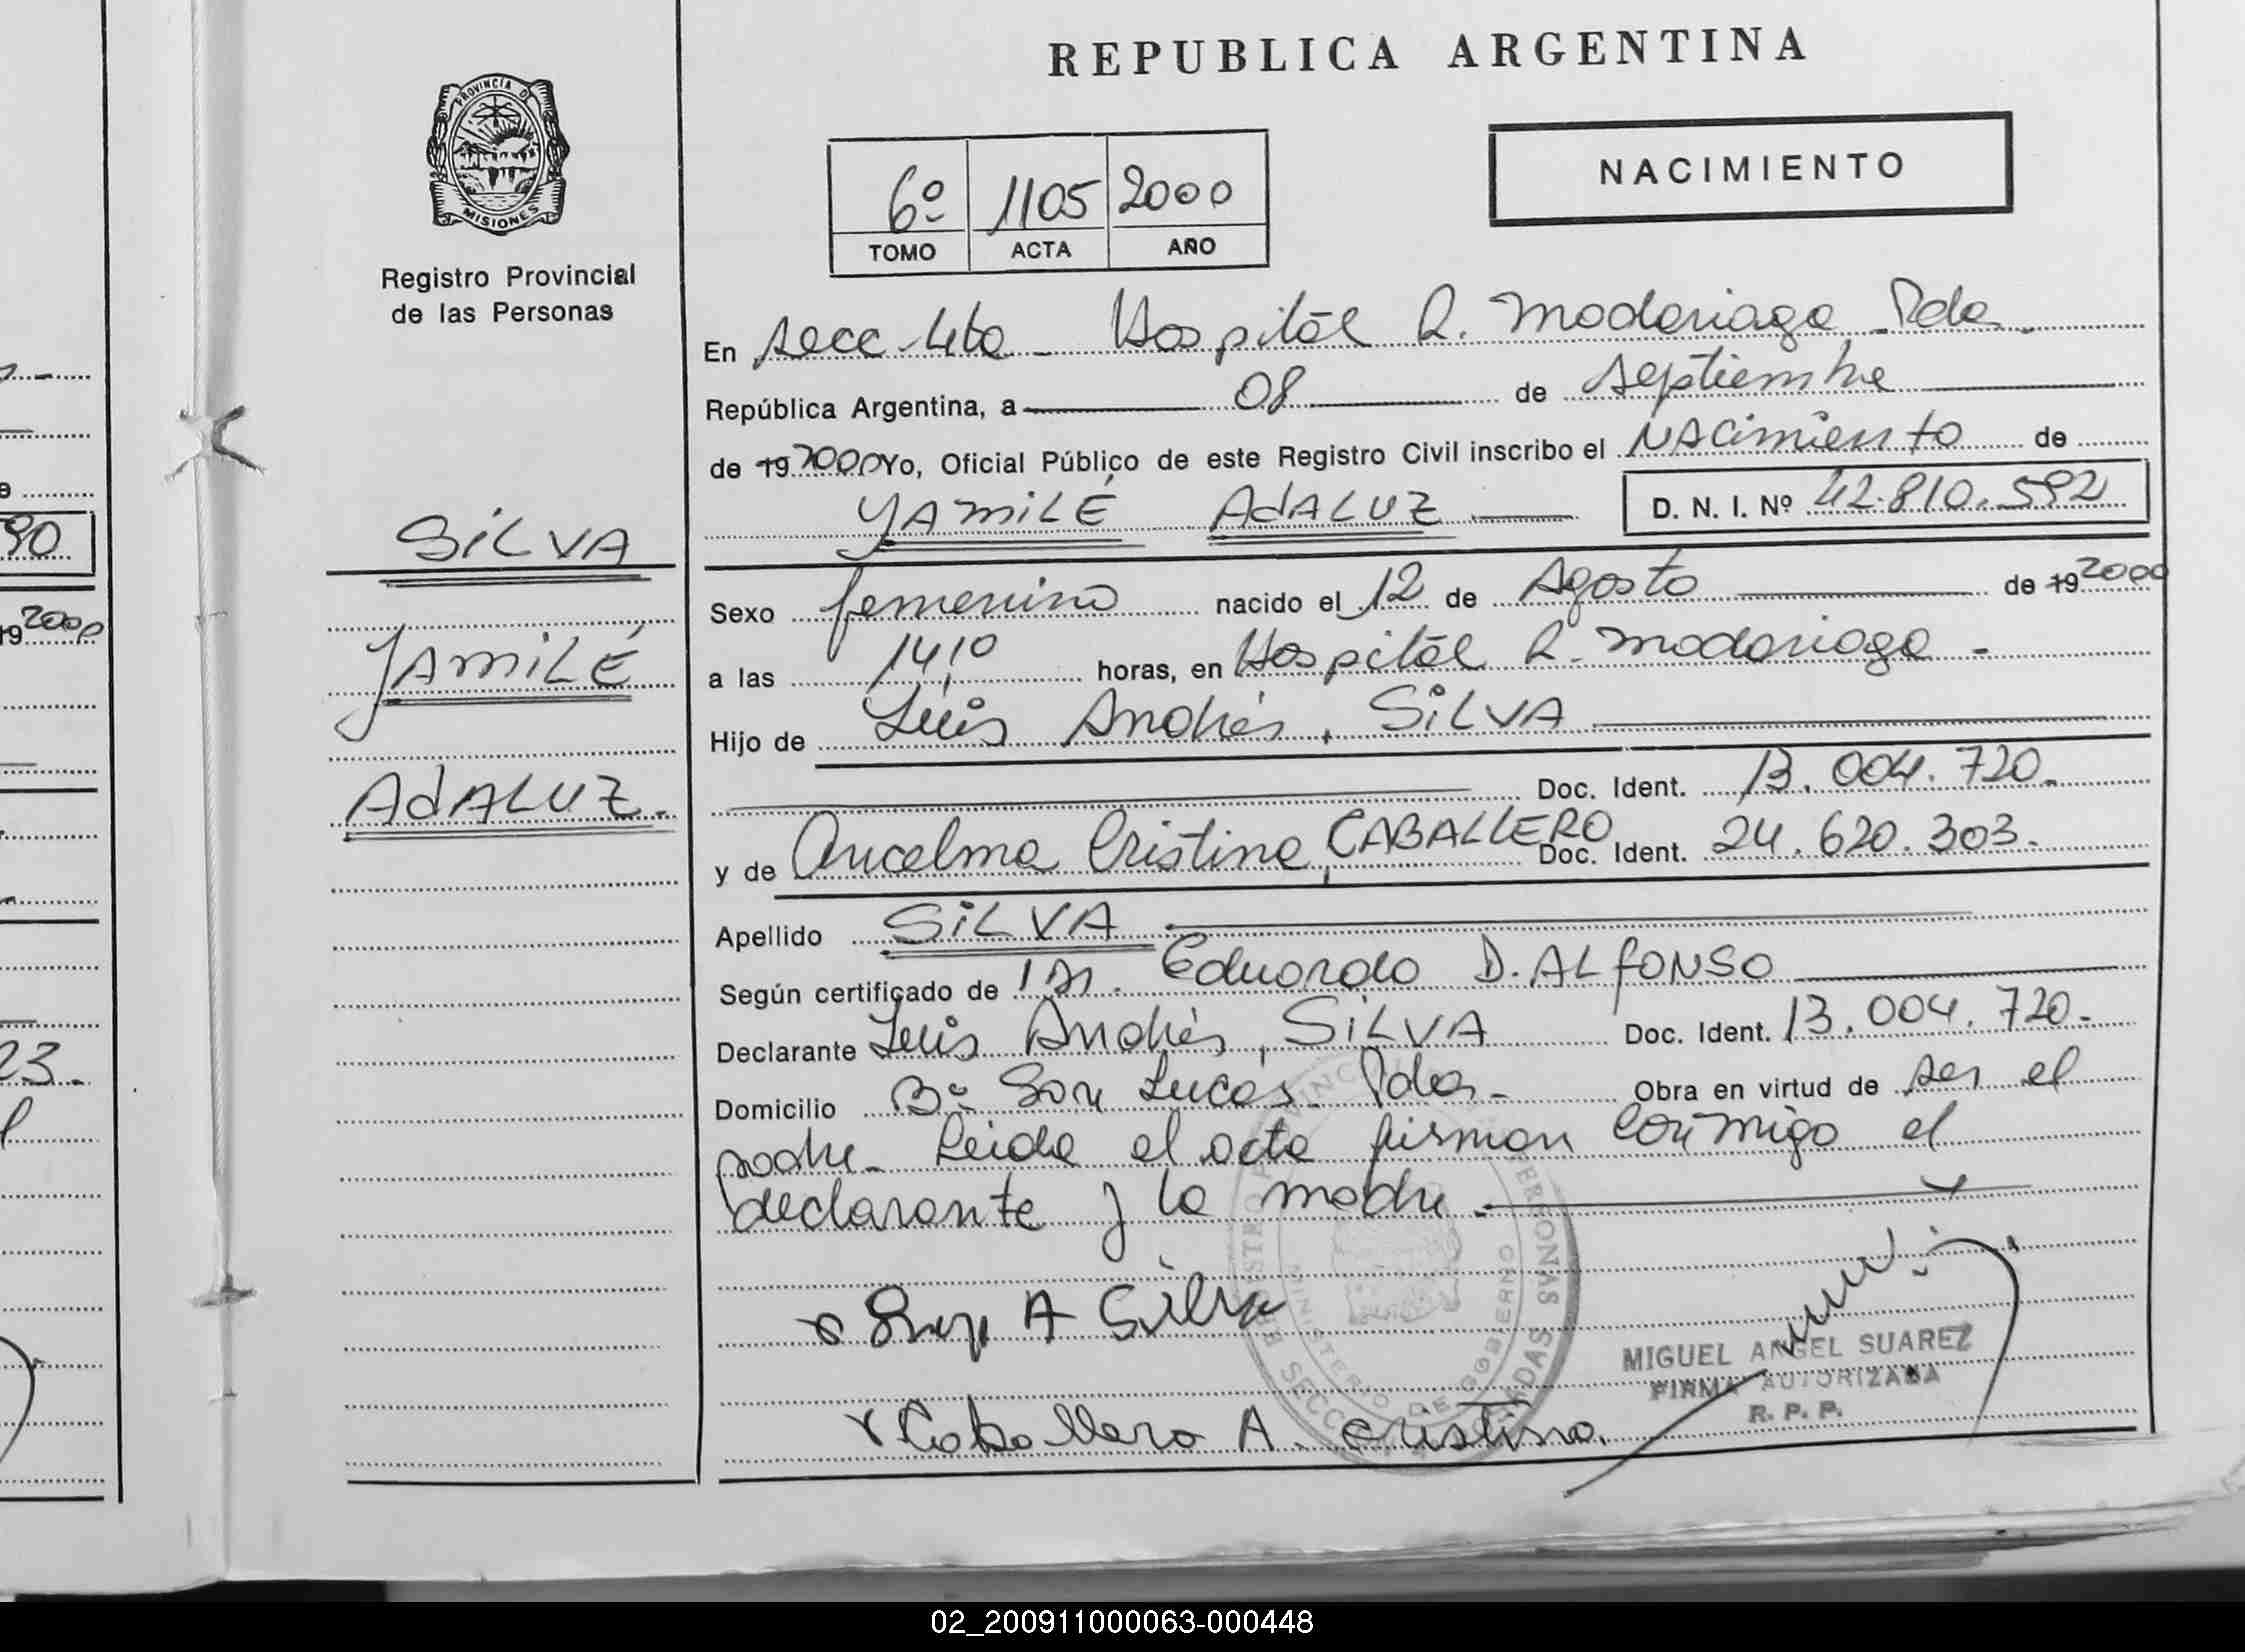 REPUBLICA ARGENTINA
NACIMIENTO
PROVINCIA DE
MISIONES
Registro Provincial
de las Personas
6º 1105 2000
TOMO ACTA AÑO
En Secc 4ta - Hospital R. Madariaga Pdas.
República Argentina, a 08 de septiembre
de 19 2000 Yo, Oficial Público de este Registro Civil inscribo el NACimiento de
YAMILÉ AdALUZ D. N. I. Nº 42.810.592
SILVA
YAMILÉ
AdALUZ.
Sexo femenino nacido el 12 de Agosto de 19 2000
a las 14,10 horas, en Hospital R. Madariaga -
Hijo de Luis Andrés, SILVA
Doc. Ident. 13.004.720.
y de Ancelma Cristina, CABALLERO Doc. Ident. 24.620.303.
Apellido SILVA
Según certificado de Dr. Eduardo D. ALfONSO
Declarante Luis Andrés, SILVA Doc. Ident. 13.004.720.
Domicilio Bº San Lucas - Pdas - Obra en virtud de ser el
padre - Leida el acta firman conmigo el
declarante y la madre.
A Silva
MIGUEL ANGEL SUAREZ
FIRMA AUTORIZADA
R. P. P.
Caballero A. Cristina.
MINISTERIO DE GOBIERNO
90
19 2000
23.
02_200911000063-000448